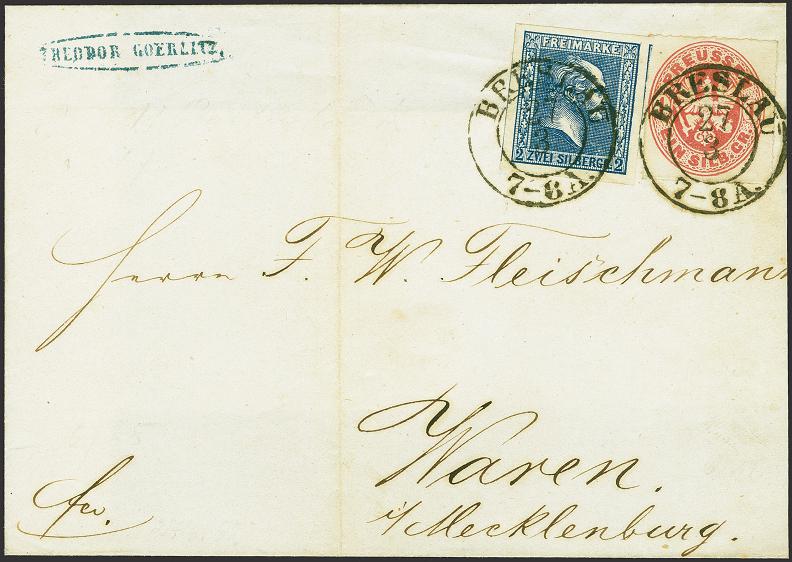 THEODOR GOERLITZ.
FREIMARKE
2 ZWEI SILBERGR. 2
BRESLAU
27
3
7-8 A.
PREUSSEN
EIN SILB.GR.
BRESLAU
27
3
7-8 A.
Herrn F. W. Fleischmann
Waren.
i/Mecklenburg.